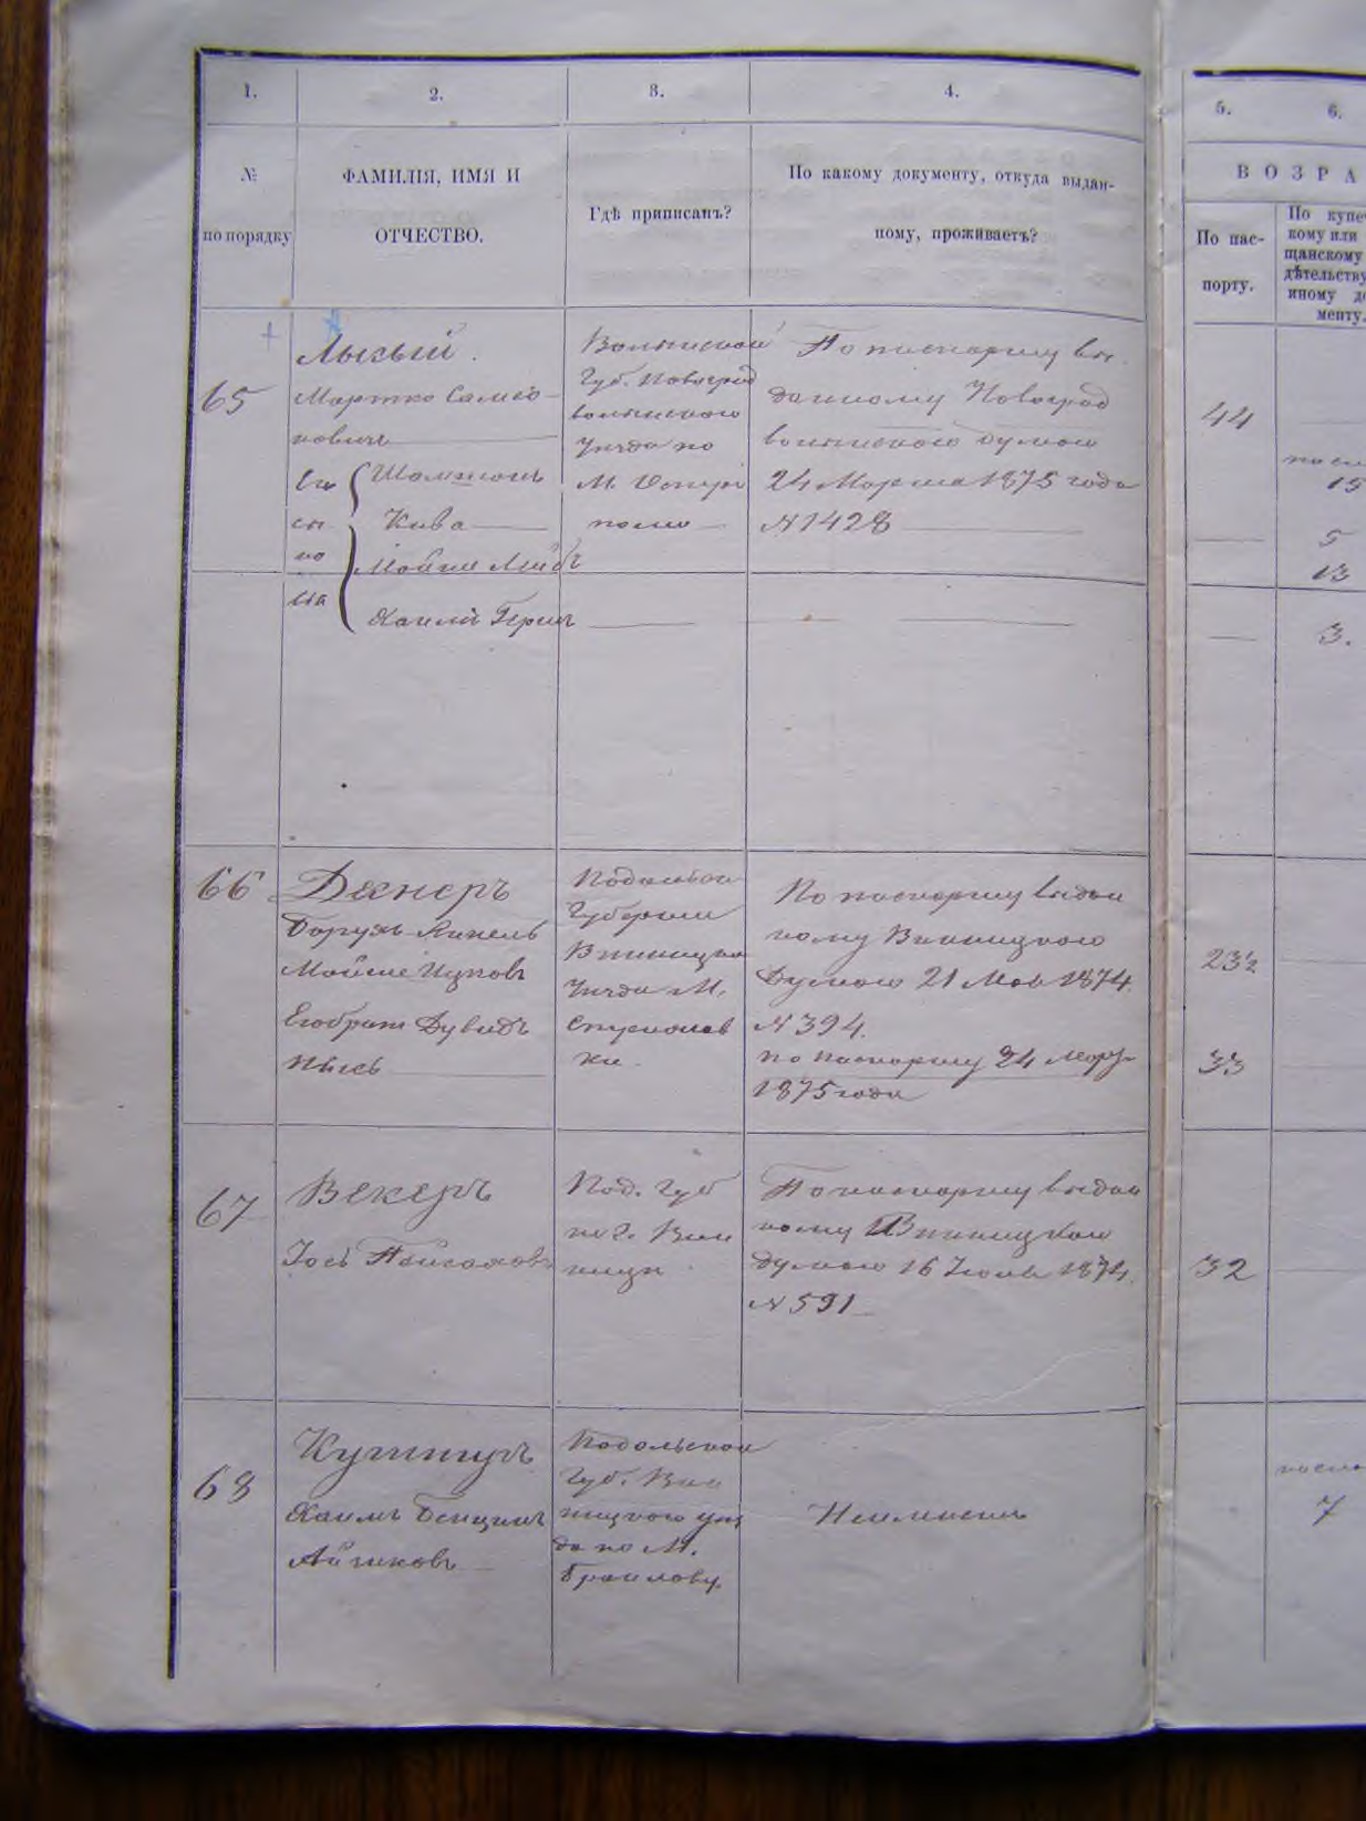 1. 2. 3. 4. 5. 6.
№ по порядку
ФАМИЛІЯ, ИМЯ И
ОТЧЕСТВО.
Гдѣ приписанъ?
По какому документу, откуда выдан-
ному, проживаетъ?
ВОЗРА
По пас-
порту.
По купе
кому или
щанскому
дѣтельству
иному до
менту.
65
Лысый.
Мортко Самсо-
новичъ
Его
сы
но
вья
Шоломонъ
Кива
Мойше Лейбъ
Хаимъ Гершъ
Волынской
Губ. Новоград
волынского
Уѣзда по
М.
полю
По паспорту вы
данному Новоград
волынскою думою
24 Марта 1875 года
№ 1428
44
15
5
13
3.
66
Декнеръ
Борухъ Янкель
Мойше Ицковъ
Его братъ Дувидъ
Подольской
Губерніи
Винницка
Уѣзда М.
Стрижавв
ки.
По паспорту выдан
ному Винницкою
Думою 21 Мая 1874
№ 394.
по паспорту 24 Мар.
1875 года
23½
33
67
Векеръ
Іось Пейсаховъ
Под. Губ
по г. Вин
ницы
По паспорту выдан
ному Винницкою
думою 16 Іюля 1874
№ 591
32
68
Кушниръ
Хаимъ Бенціинъ
Айзиковъ
Подольской
Губ. Вин
ницкого уѣз
да по М.
Браилову.
Неимѣетъ
7